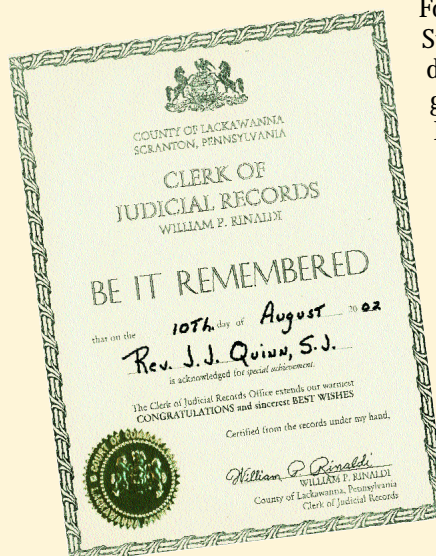 COUNTY OF LACKAWANNA
SCRANTON, PENNSYLVANIA
CLERK OF
JUDICIAL RECORDS
WILLIAM P. RINALDI
BE IT REMEMBERED
that on the 10Th day of August 2002
Rev. J.J. Quinn, S.J.
is acknowledged for special achievement.
The Clerk of Judicial Records Office extends our warmest
CONGRATULATIONS and sincerest BEST WISHES
Certified from the records under my hand,
William P. Rinaldi
WILLIAM P. RINALDI
County of Lackawanna, Pennsylvania
Clerk of Judicial Records